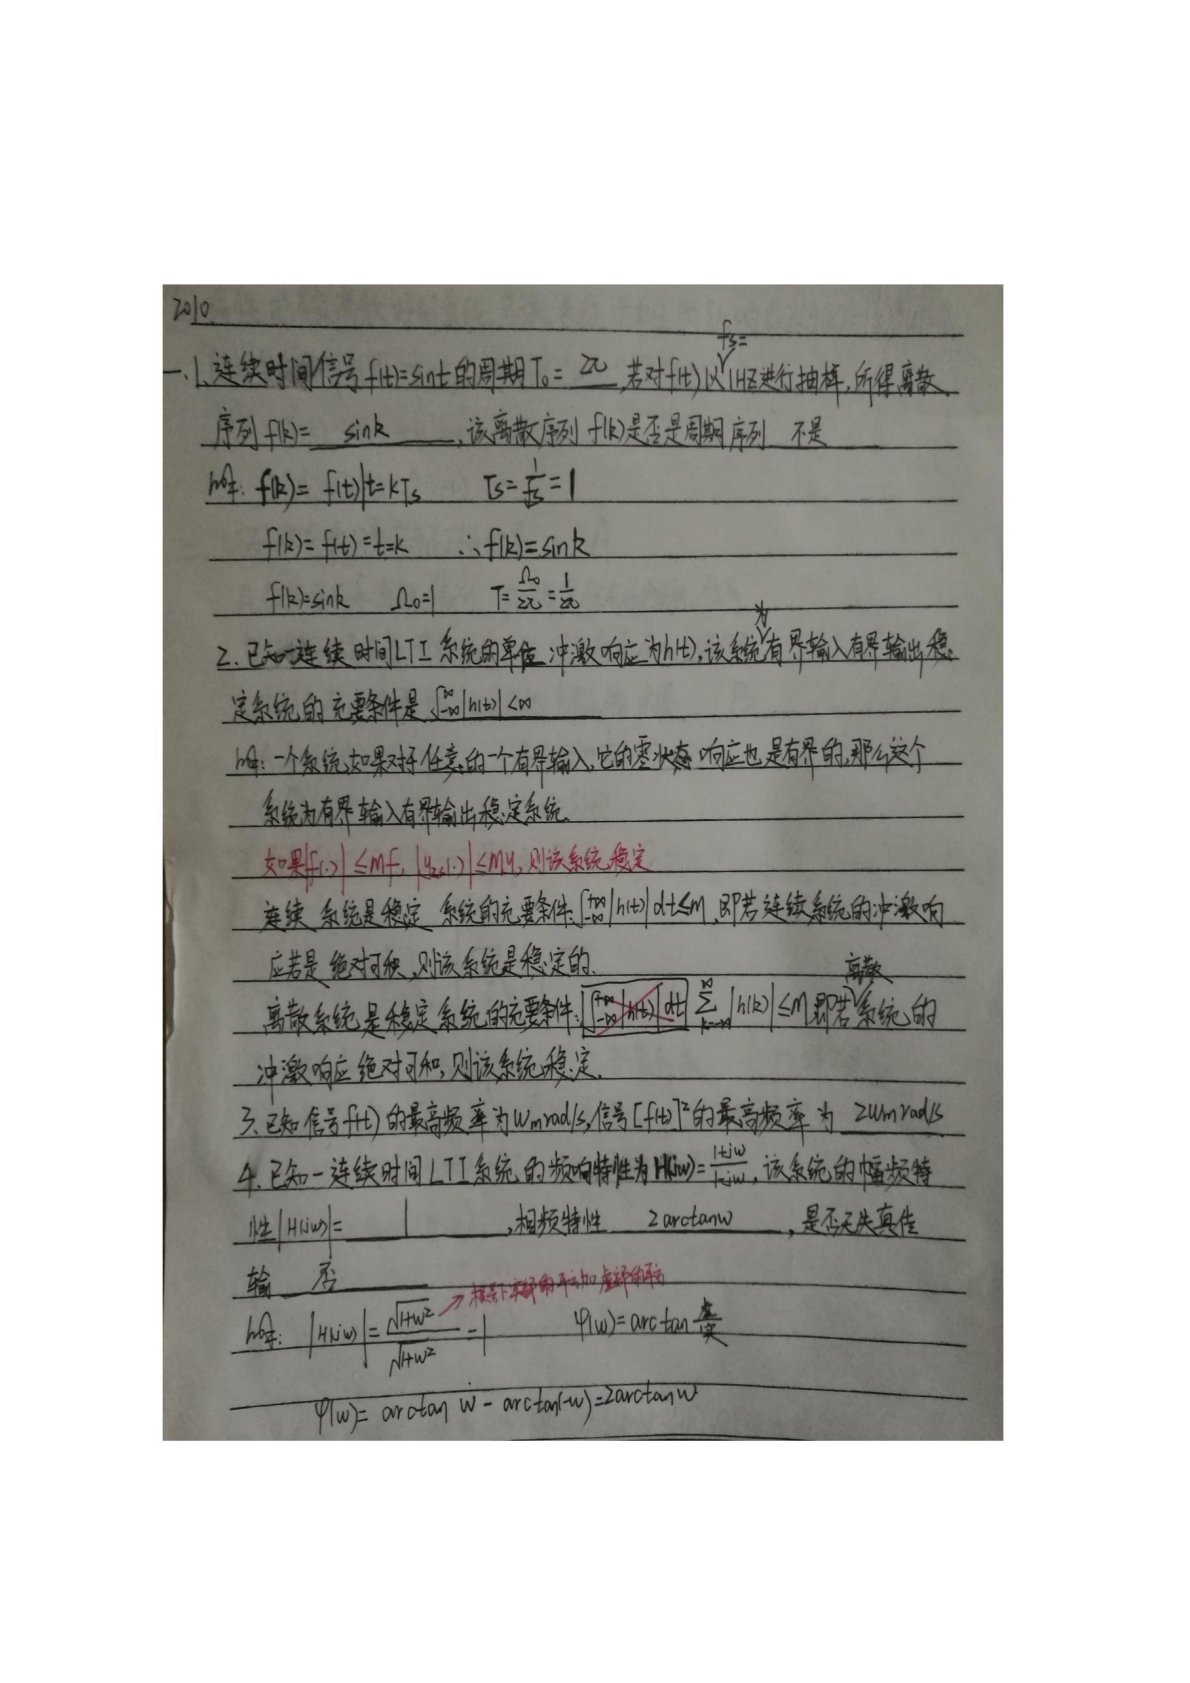 2010.
一.1.连续时间信号f(t)=sint的周期T₀= 2π ,若对f(t)以fs=1HZ进行抽样,所得离散
序列f(k)= sink ,该离散序列f(k)是否是周期序列 不是
解: f(k)= f(t)|t=kTs Ts=1/fs=1
f(k)=f(t)=t=k ∴f(k)=sink
f(k)=sink Ω₀=1 T=Ω₀/2π=1/2π
2.已知一连续时间LTI系统的单位冲激响应为h(t),该系统为有界输入有界输出稳
定系统的充要条件是 ∫_{-∞}^{∞}|h(t)|<∞
解:一个系统,如果对于任意的一个有界输入,它的零状态响应也是有界的,那么这个
系统为有界输入有界输出稳定系统.
如果|f(.)|≤Mf, |yzs(.)|≤My,则该系统稳定
连续系统是稳定系统的充要条件:∫_{-∞}^{+∞}|h(t)|dt≤M,即若连续系统的冲激响
应若是绝对可积,则该系统是稳定的.
离散系统是稳定系统的充要条件: ∫_{-∞}^{+∞}|h(t)|dt ∑_{k=-∞}^{∞}|h(k)|≤M即若离散系统的
冲激响应绝对可和,则该系统稳定.
3.已知信号f(t)的最高频率为ωm rad/s,信号[f(t)]²的最高频率为 2ωm rad/s
4.已知一连续时间LTI系统的频响特性为H(jω)=(1+jω)/(1-jω),该系统的幅频特
性|H(jω)|= 1 ,相频特性 2arctanω ,是否无失真传
输 否
→根号下实部的平方加虚部的平方
解: |H(jω)|=√(1+ω²)/√(1+ω²)=1 φ(ω)=arctan 虚/实
φ(ω)= arctan ω - arctan(-ω)=2arctanω